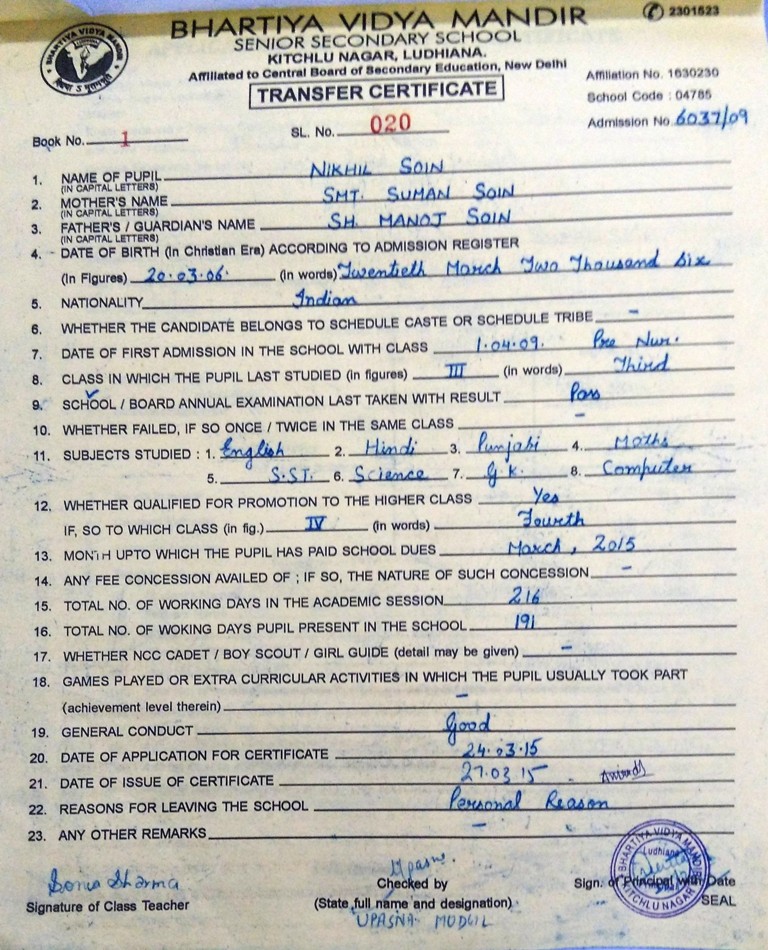 BHARTIYA VIDYA MANDIR
✆ 2301523
SENIOR SECONDARY SCHOOL
KITCHLU NAGAR, LUDHIANA.
Affiliated to Central Board of Secondary Education, New Delhi
TRANSFER CERTIFICATE
Affiliation No. 1630230
School Code : 04785
Admission No 6037/09
Book No. 1 SL. No. 020
1. NAME OF PUPIL NIKHIL SOIN
(IN CAPITAL LETTERS)
2. MOTHER'S NAME SMT. SUMAN SOIN
(IN CAPITAL LETTERS)
3. FATHER'S / GUARDIAN'S NAME SH. MANOJ SOIN
(IN CAPITAL LETTERS)
4. DATE OF BIRTH (In Christian Era) ACCORDING TO ADMISSION REGISTER
(In Figures) 20.03.06. (in words) Twentieth March Two Thousand Six
5. NATIONALITY Indian
6. WHETHER THE CANDIDATE BELONGS TO SCHEDULE CASTE OR SCHEDULE TRIBE -
7. DATE OF FIRST ADMISSION IN THE SCHOOL WITH CLASS 1.04.09. Pre Nur.
8. CLASS IN WHICH THE PUPIL LAST STUDIED (in figures) III (in words) Third
9. SCHOOL / BOARD ANNUAL EXAMINATION LAST TAKEN WITH RESULT Pass
10. WHETHER FAILED, IF SO ONCE / TWICE IN THE SAME CLASS -
11. SUBJECTS STUDIED : 1. English 2. Hindi 3. Punjabi 4. Maths
5. S.ST. 6. Science 7. G.K. 8. Computer
12. WHETHER QUALIFIED FOR PROMOTION TO THE HIGHER CLASS Yes
IF, SO TO WHICH CLASS (in fig.) IV (in words) Fourth
13. MONTH UPTO WHICH THE PUPIL HAS PAID SCHOOL DUES March, 2015
14. ANY FEE CONCESSION AVAILED OF ; IF SO, THE NATURE OF SUCH CONCESSION -
15. TOTAL NO. OF WORKING DAYS IN THE ACADEMIC SESSION 216
16. TOTAL NO. OF WOKING DAYS PUPIL PRESENT IN THE SCHOOL 191
17. WHETHER NCC CADET / BOY SCOUT / GIRL GUIDE (detail may be given) -
18. GAMES PLAYED OR EXTRA CURRICULAR ACTIVITIES IN WHICH THE PUPIL USUALLY TOOK PART
(achievement level therein) -
19. GENERAL CONDUCT Good
20. DATE OF APPLICATION FOR CERTIFICATE 24.03.15
21. DATE OF ISSUE OF CERTIFICATE 27.03.15
22. REASONS FOR LEAVING THE SCHOOL Personal Reason
23. ANY OTHER REMARKS -
Sonia Sharma
Signature of Class Teacher
Upasna.
Checked by
(State full name and designation)
UPASNA MUDGIL
Sign. of Principal with Date
SEAL
BHARTIYA VIDYA MANDIR
Ludhiana
KITCHLU NAGAR